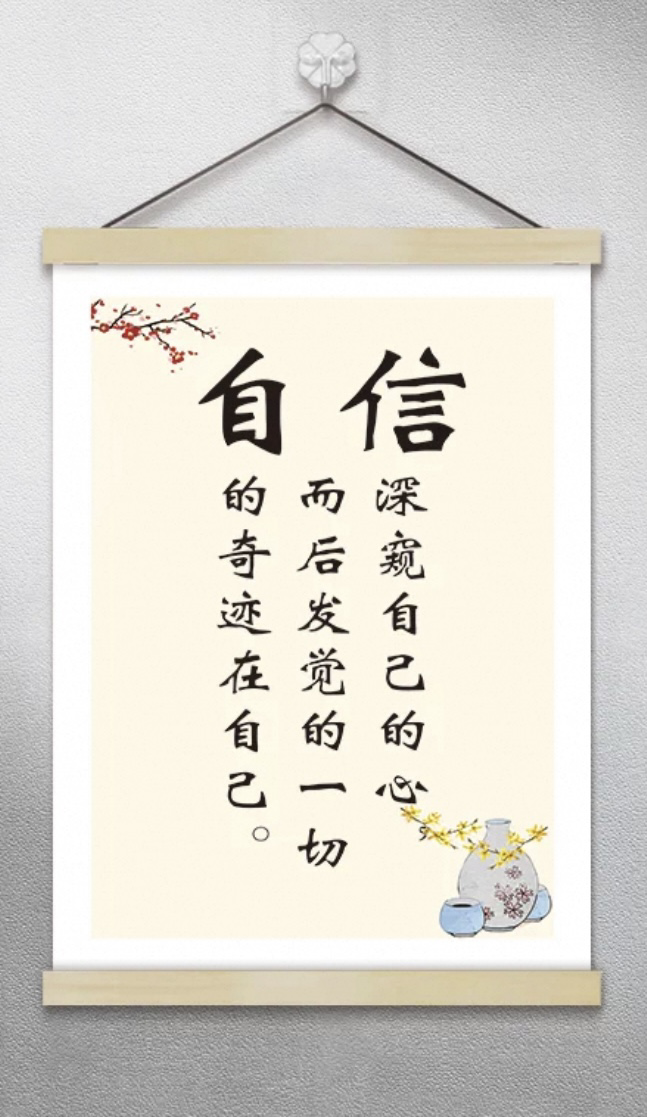 自信
深窥自己的心
而后发觉的一切
的奇迹在自己。